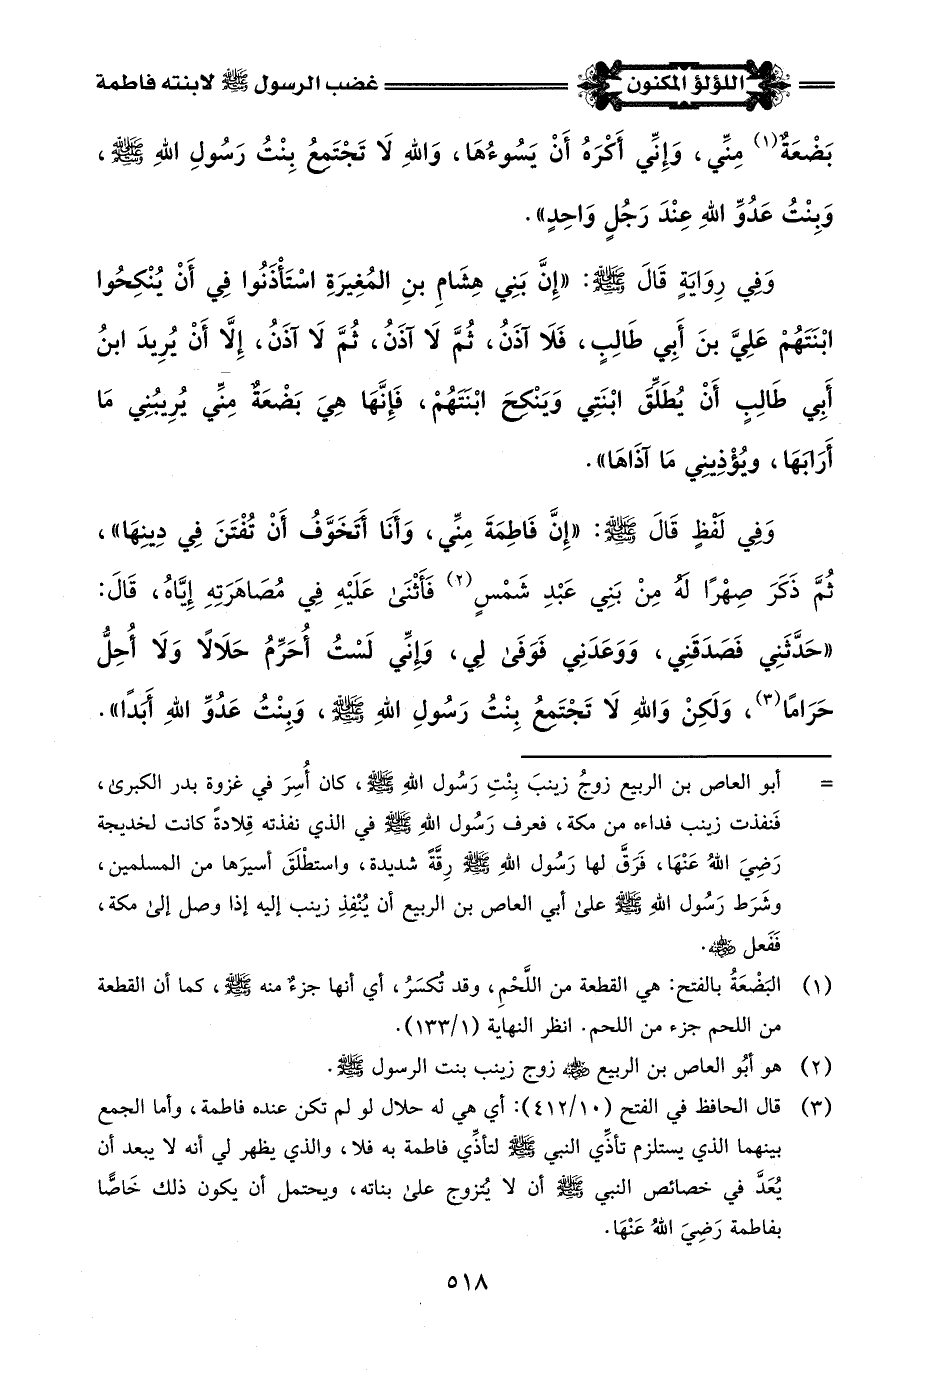 اللؤلؤ المكنون غضب الرسول ﷺ لابنته فاطمة
بَضْعَةٌ(١) مِنِّي، وَإِنِّي أَكْرَهُ أَنْ يَسُوءُهَا، وَاللهِ لَا تَجْتَمِعُ بِنْتُ رَسُولِ اللهِ ﷺ،
وَبِنْتُ عَدُوِّ اللهِ عِنْدَ رَجُلٍ وَاحِدٍ».
وَفِي رِوَايَةٍ قَالَ ﷺ: «إِنَّ بَنِي هِشَامِ بنِ المُغِيرَةِ اسْتَأْذَنُوا فِي أَنْ يُنْكِحُوا
ابْنَتَهُمْ عَلِيَّ بنَ أَبِي طَالِبٍ، فَلَا آذَنُ، ثُمَّ لَا آذَنُ، ثُمَّ لَا آذَنُ، إِلَّا أَنْ يُرِيدَ ابنُ
أَبِي طَالِبٍ أَنْ يُطَلِّقَ ابْنَتِي وَيَنْكِحَ ابْنَتَهُمْ، فَإِنَّهَا هِيَ بَضْعَةٌ مِنِّي يُرِيبُنِي مَا
أَرَابَهَا، ويُؤْذِينِي مَا آذَاهَا».
وَفِي لَفْظٍ قَالَ ﷺ: «إِنَّ فَاطِمَةَ مِنِّي، وَأَنَا أَتَخَوَّفُ أَنْ تُفْتَنَ فِي دِينِهَا»،
ثُمَّ ذَكَرَ صِهْرًا لَهُ مِنْ بَنِي عَبْدِ شَمْسٍ(٢) فَأَثْنَىٰ عَلَيْهِ فِي مُصَاهَرَتِهِ إِيَّاهُ، قَالَ:
«حَدَّثَنِي فَصَدَقَنِي، وَوَعَدَنِي فَوَفَىٰ لِي، وَإِنِّي لَسْتُ أُحَرِّمُ حَلَالًا وَلَا أُحِلُّ
حَرَامًا(٣)، وَلَكِنْ وَاللهِ لَا تَجْتَمِعُ بِنْتُ رَسُولِ اللهِ ﷺ، وَبِنْتُ عَدُوِّ اللهِ أَبَدًا».
= أبو العاص بن الربيع زوجُ زينبَ بِنْتِ رَسُولِ اللهِ ﷺ، كان أُسِرَ في غزوة بدر الكبرىٰ،
فَنفذت زينب فداءه من مكة، فعرف رَسُول اللهِ ﷺ في الذي نفذته قِلادةً كانت لخديجة
رَضِيَ اللهُ عَنْهَا، فَرَقَّ لها رَسُول اللهِ ﷺ رِقَّةً شديدة، واستطْلَقَ أسيرَها من المسلمين،
وشَرَط رَسُول اللهِ ﷺ علىٰ أبي العاص بن الربيع أن يُنْفِذِ زينب إليه إذا وصل إلىٰ مكة،
فَفَعل رضي الله عنه.
(١) البَضْعَةُ بالفتح: هي القطعة من اللَّحْمِ، وقد تُكسَرُ، أي أنها جزءٌ منه ﷺ، كما أن القطعة
من اللحم جزء من اللحم. انظر النهاية (١/١٣٣).
(٢) هو أبُو العاص بن الربيع رضي الله عنه زوج زينب بنت الرسول ﷺ.
(٣) قال الحافظ في الفتح (١٠/٤١٢): أي هي له حلال لو لم تكن عنده فاطمة، وأما الجمع
بينهما الذي يستلزم تأذِّي النبي ﷺ لتأذِّي فاطمة به فلا، والذي يظهر لي أنه لا يبعد أن
يُعَدَّ في خصائص النبي ﷺ أن لا يُتزوج علىٰ بناته، ويحتمل أن يكون ذلك خَاصًّا
بفاطمة رَضِيَ اللهُ عَنْهَا.
٥١٨